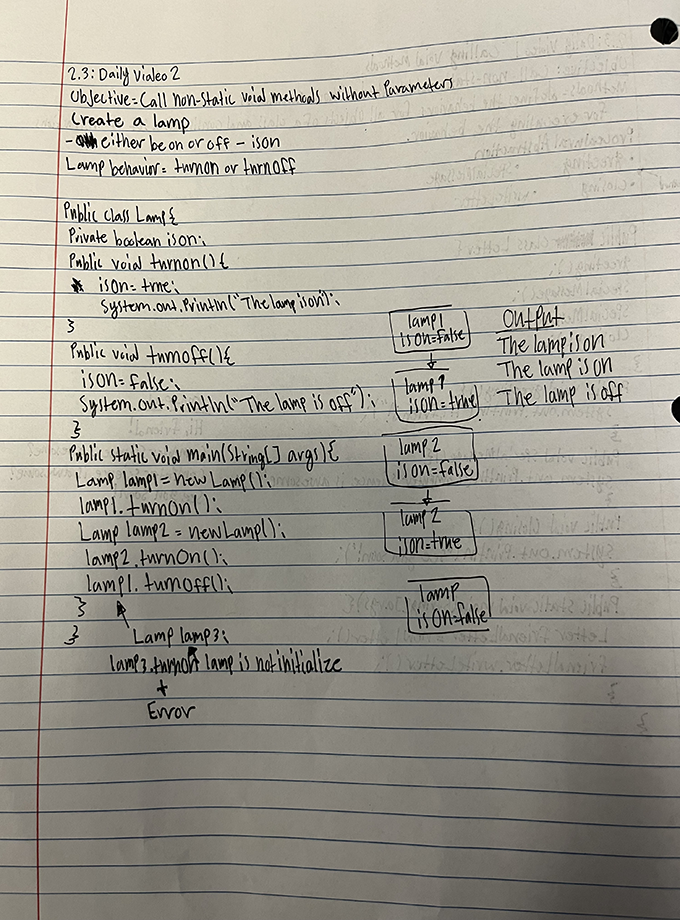 2.3: Daily Video 2
Objective = Call non-static void methods without Parameters
Create a lamp
- either be on or off - ison
Lamp behavior = turnon or turnoff
Public class Lamp{
Private boolean ison;
Public void turnon(){
ison = true;
System.out.Println("The lamp ison);
}
Public void turnoff(){
ison = false;
System.out.Println("The lamp is off");
}
Public static void main(String[] args){
Lamp lamp1 = new Lamp();
lamp1.turnon();
Lamp lamp2 = new Lamp();
lamp2.turnOn();
lamp1.turnoff();
}
}
Lamp lamp3;
lamp3.turnon lamp is not initialize
+
Error
lamp1
ison=false
lamp1
ison=true
lamp2
ison=false
lamp2
ison=true
lamp
ison=false
Output
The lamp is on
The lamp is on
The lamp is off